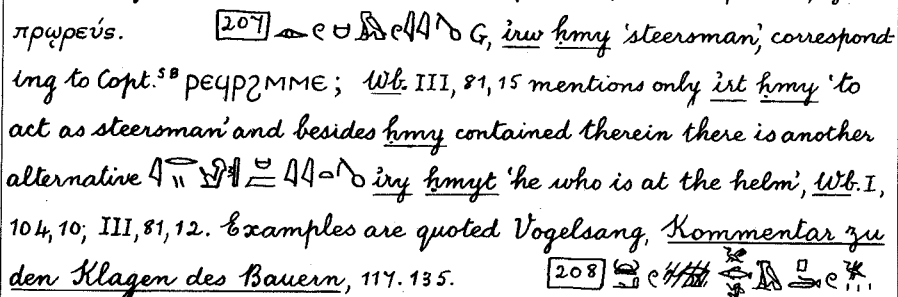 πρῳρεύς. 207 G, ỉrw ḥmy 'steersman', correspond-
ing to Copt. SB ⲣⲉϥⲣϩⲙⲙⲉ; Wb. III, 81, 15 mentions only ỉrt ḥmy 'to
act as steersman' and besides ḥmy contained therein there is another
alternative ỉry ḥmyt 'he who is at the helm', Wb. I,
104, 10; III, 81, 12. Examples are quoted Vogelsang, Kommentar zu
den Klagen des Bauern, 117. 135. 208